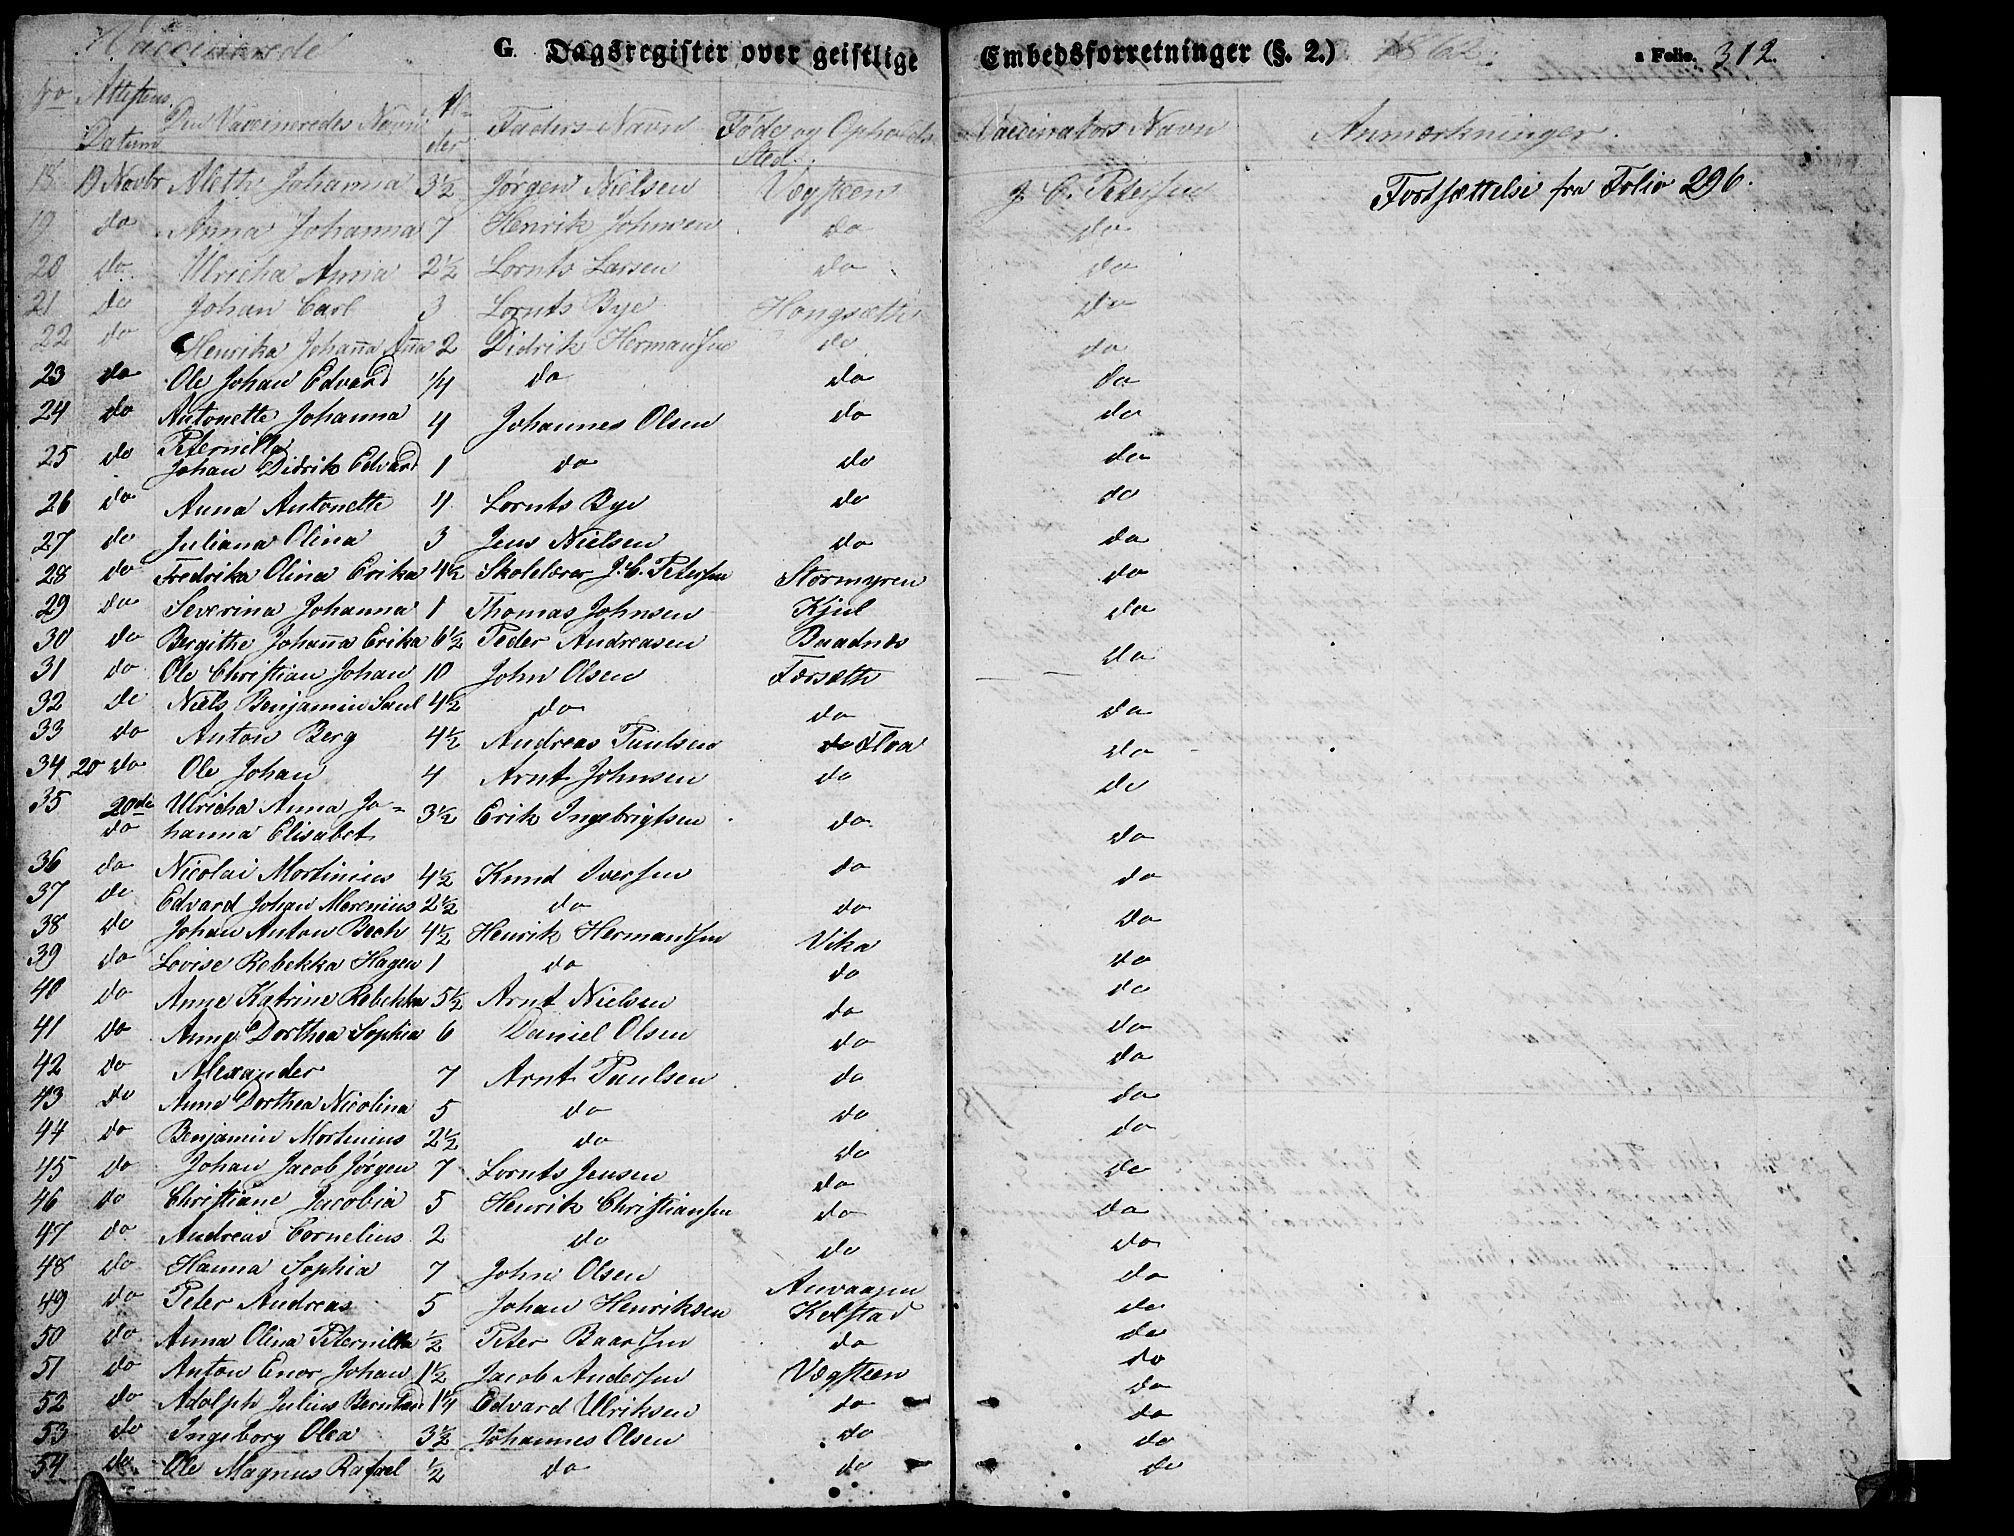 Vaccinerede G. Dagsregister over geistlige Embedsforretninger (§. 2.) 1862. a Folio. 312.
No Attestens Datum Den Vaccineredes Navn Alder Faders Navn Føde og Opholds Sted. Vaccinators Navn Anmærkninger.
18 19 Novbr Aleth Johanna 3½ Jørgen Nielsen Vægsteen J. C. Petersen Fortsættelse fra Folio 296.
19 do Anna Johanna 7 Henrik Johnsen do do
20 do Ulricha Annia 2½ Lornts Larsen do do
21 do Johan Carl 3 Lornts Bye Hongsæth do
22 do Henrika Johan̄a An̄a 2 Didrik Hermansen do do
23 do Ole Johan Edvard ¼ do do do
24 do Antonette Johanna Peternilla 4 Johannes Olsen do do
25 do Johan Didrik Edvard 1 do do do
26 do Anna Antonette 4 Lornts Bye do do
27 do Juliana Olina 3 Jens Nielsen do do
28 do Fredrika Olina Erika 4½ Skolelærer J. C. Petersen Stormyren do
29 do Severina Johanna 1 Thomas Johnsen Kjul do
30 do Bergithe Johan̄a Erika 6½ Peder Andreasen Baadnes do
31 do Ole Christian Johan 10 John Olsen Forsæth — —
32 do Niels Benjamin Saul 4½ do do do
33 do Anton Berg 4½ Andreas Paulsen do Floa do
34 20 do Ole Johan 4 Arnt Johnsen do do
35 20de do Ulricha Anna Johanna Elisabet 3½ Erik Ingebrigtsen do do
36 do Nicolai Mortinius 4½ Knud Iversen do do
37 do Edvard Johan Marenius 2½ do do do
38 do Johan Anton Bech 4½ Henrik Hermansen Vika do
39 do Lovise Rebekka Hagen 1 do do do
40 do Anne Katrine Rebekka 5½ Arnt Nielsen do do
41 do Anne Dorthea Sophia 6 Daniel Olsen do do
42 do Alexander 7 Arnt Paulsen do do
43 do Anne Dorthea Nicolina 5 do do do
44 do Benjamin Mortinius 2½ do do do
45 do Johan Jacob Jørgen 7 Lornts Jensen do do
46 do Christiane Jacobia 5 Henrik Christiansen do do
47 do Andreas Cornelius 2 do do do
48 do Hanna Sophia 7 John Olsen Anvaagen do
49 do Peter Andreas 5 Johan Henriksen Kelstad do
50 do Anna Olina Peternilla ½ Peter Baardsen do do
51 do Anton Enor Johan 1½ Jacob Andersen Vægsteen do
52 do Adolph Julius Berntan 1¼ Edvard Ulriksen do do
53 do Ingeborg Olea 3½ Johannes Olsen do do
54 do Ole Magnus Rafael ½ do do do